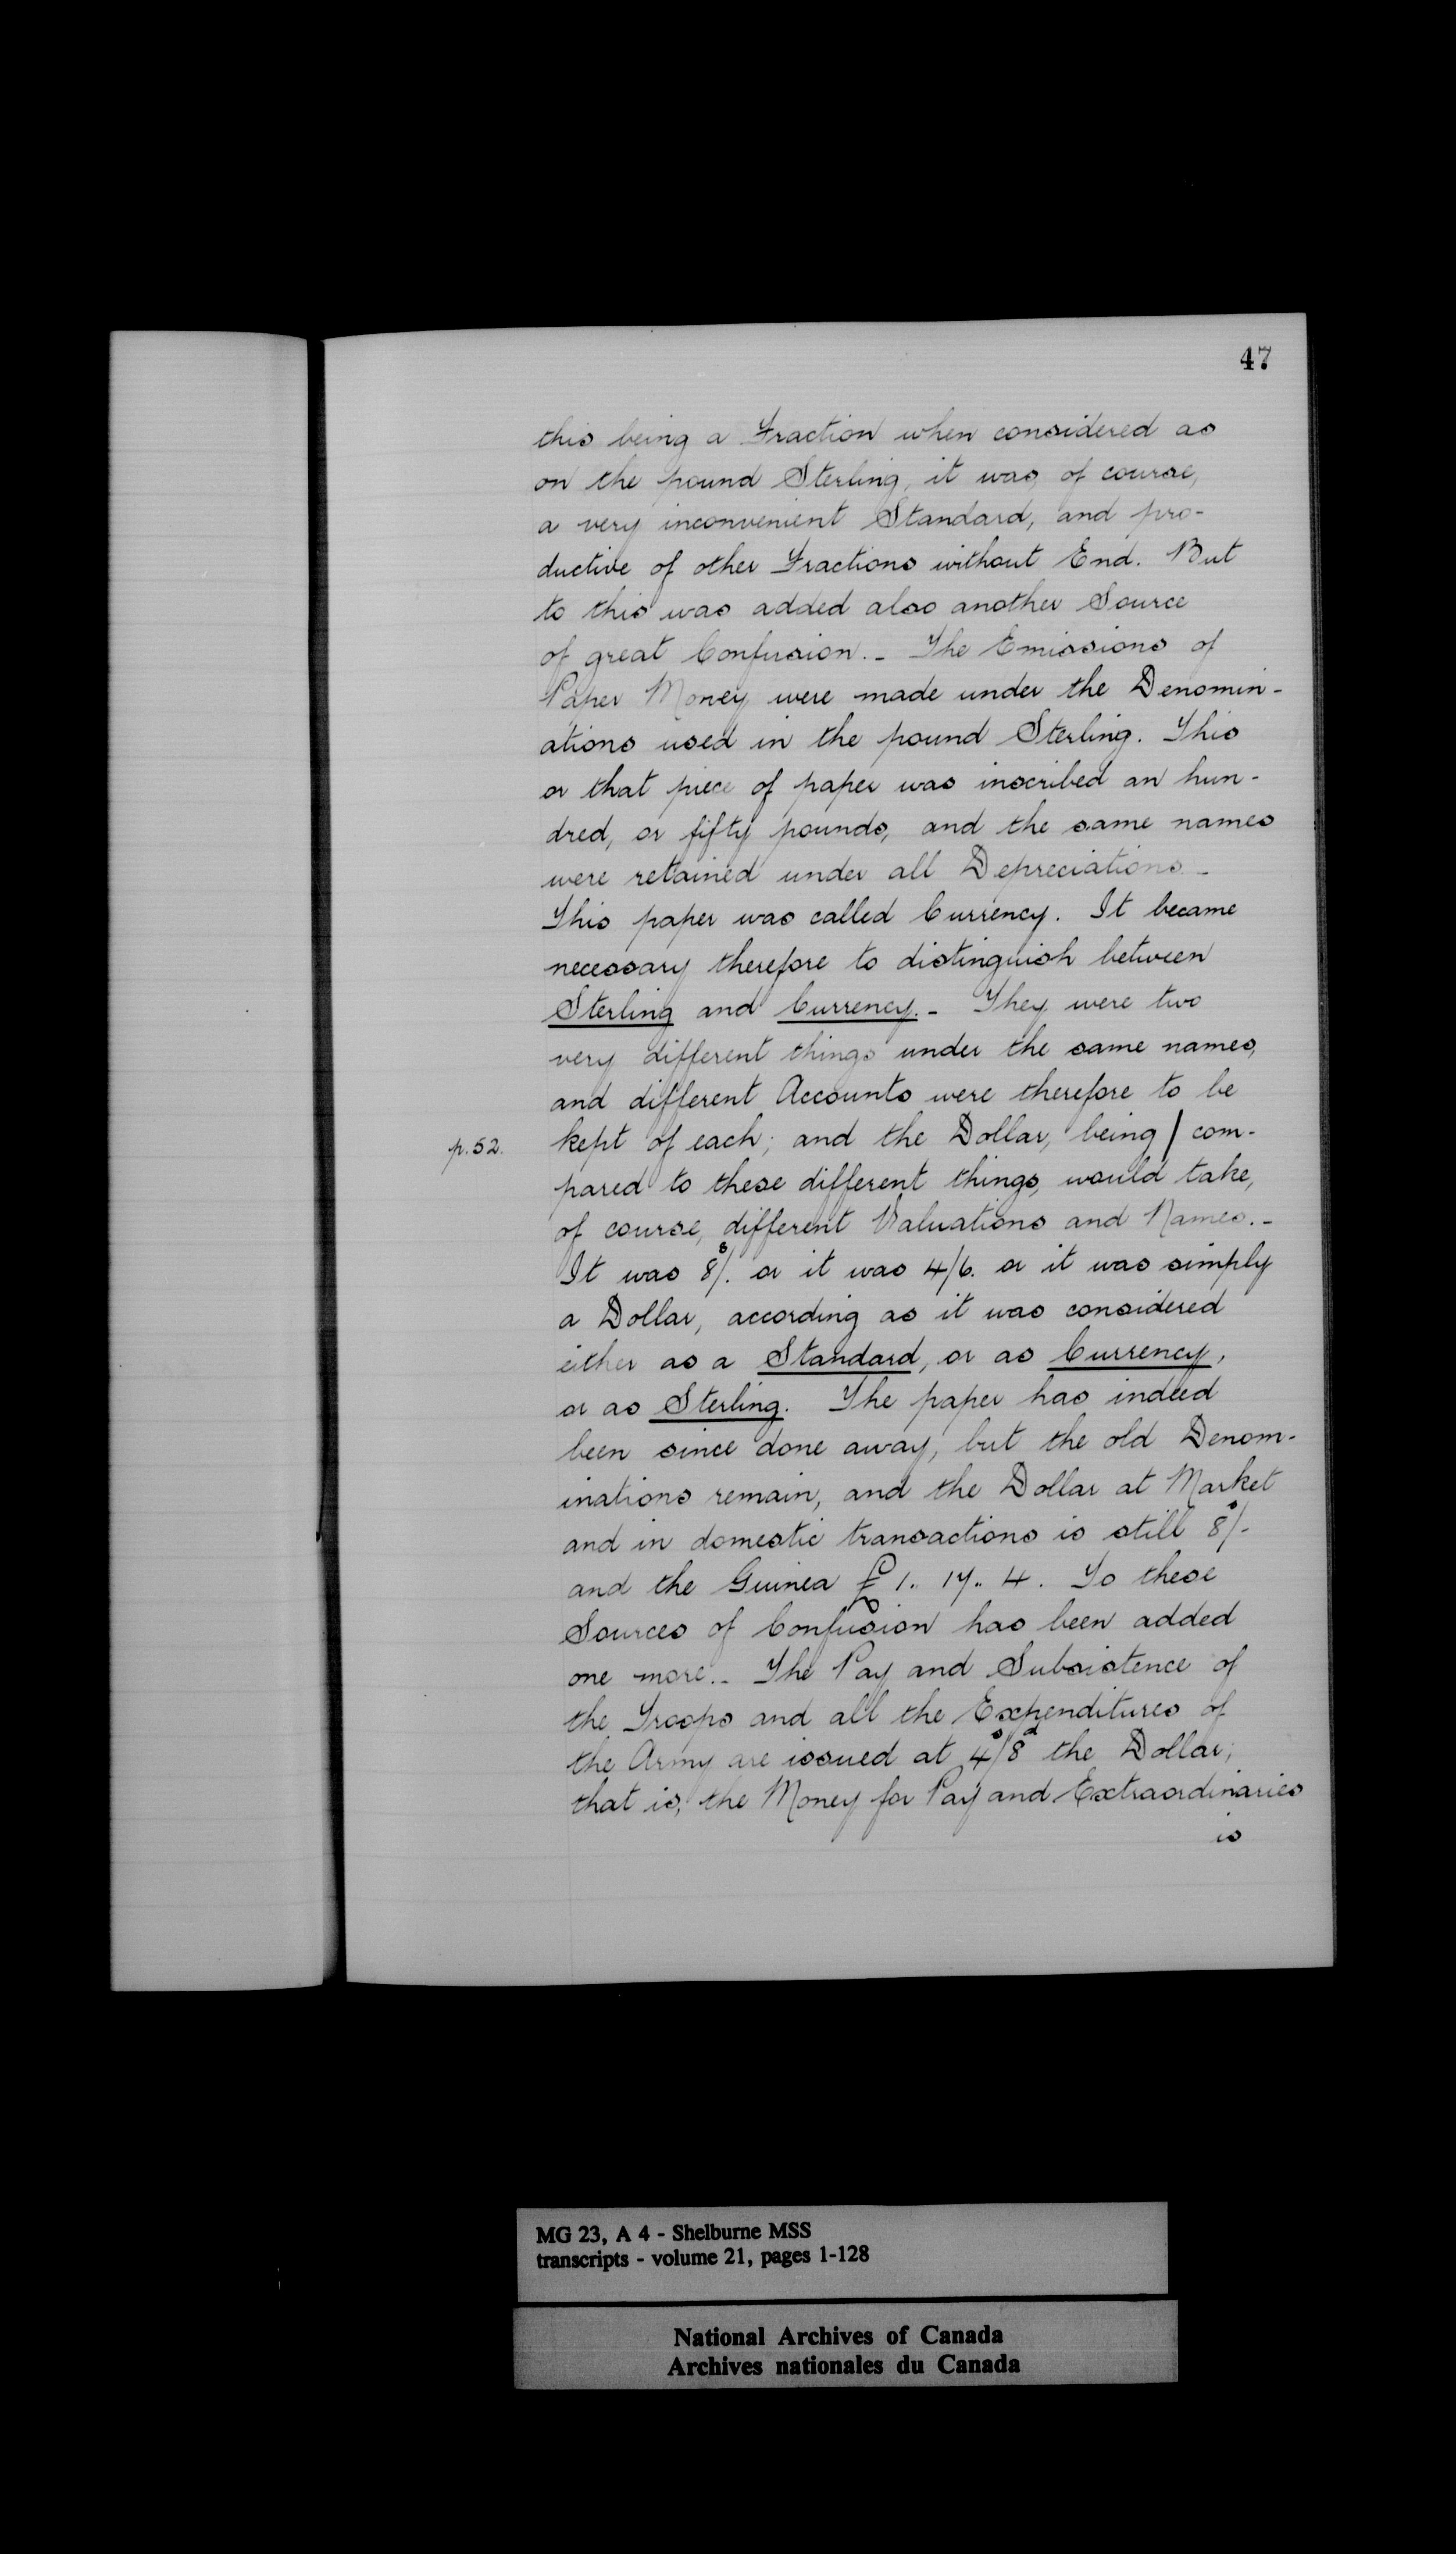 47
this being a Fraction when considered as
on the pound Sterling, it was, of course,
a very inconvenient Standard, and pro-
ductive of other Fractions without End. But
to this was added also another Source
of great Confusion. - The Emissions of
Paper Money were made under the Denomin-
ations used in the pound Sterling. This
or that piece of paper was inscribed an hun-
dred, or fifty pounds, and the same names
were retained under all Depreciations. -
This paper was called Currency. It became
necessary therefore to distinguish between
Sterling and Currency. - They were two
very different things under the same names,
and different Accounts were therefore to be
p. 52. kept of each; and the Dollar, being / com-
pared to these different things, would take,
of course, different Valuations and Names. -
It was 8s/. or it was 4/6. or it was simply
a Dollar, according as it was considered
either as a Standard, or as Currency,
or as Sterling. The paper has indeed
been since done away, but the old Denom-
inations remain, and the Dollar at Market
and in domestic transactions is still 8s/-
and the Guinea £1.. 17.. 4. To these
Sources of Confusion has been added
one more. - The Pay and Subsistence of
the Troops and all the Expenditures of
the Army are issued at 4s/8d the Dollar;
that is, the Money for Pay and Extraordinaries
is
MG 23, A 4 - Shelburne MSS
transcripts - volume 21, pages 1-128
National Archives of Canada
Archives nationales du Canada